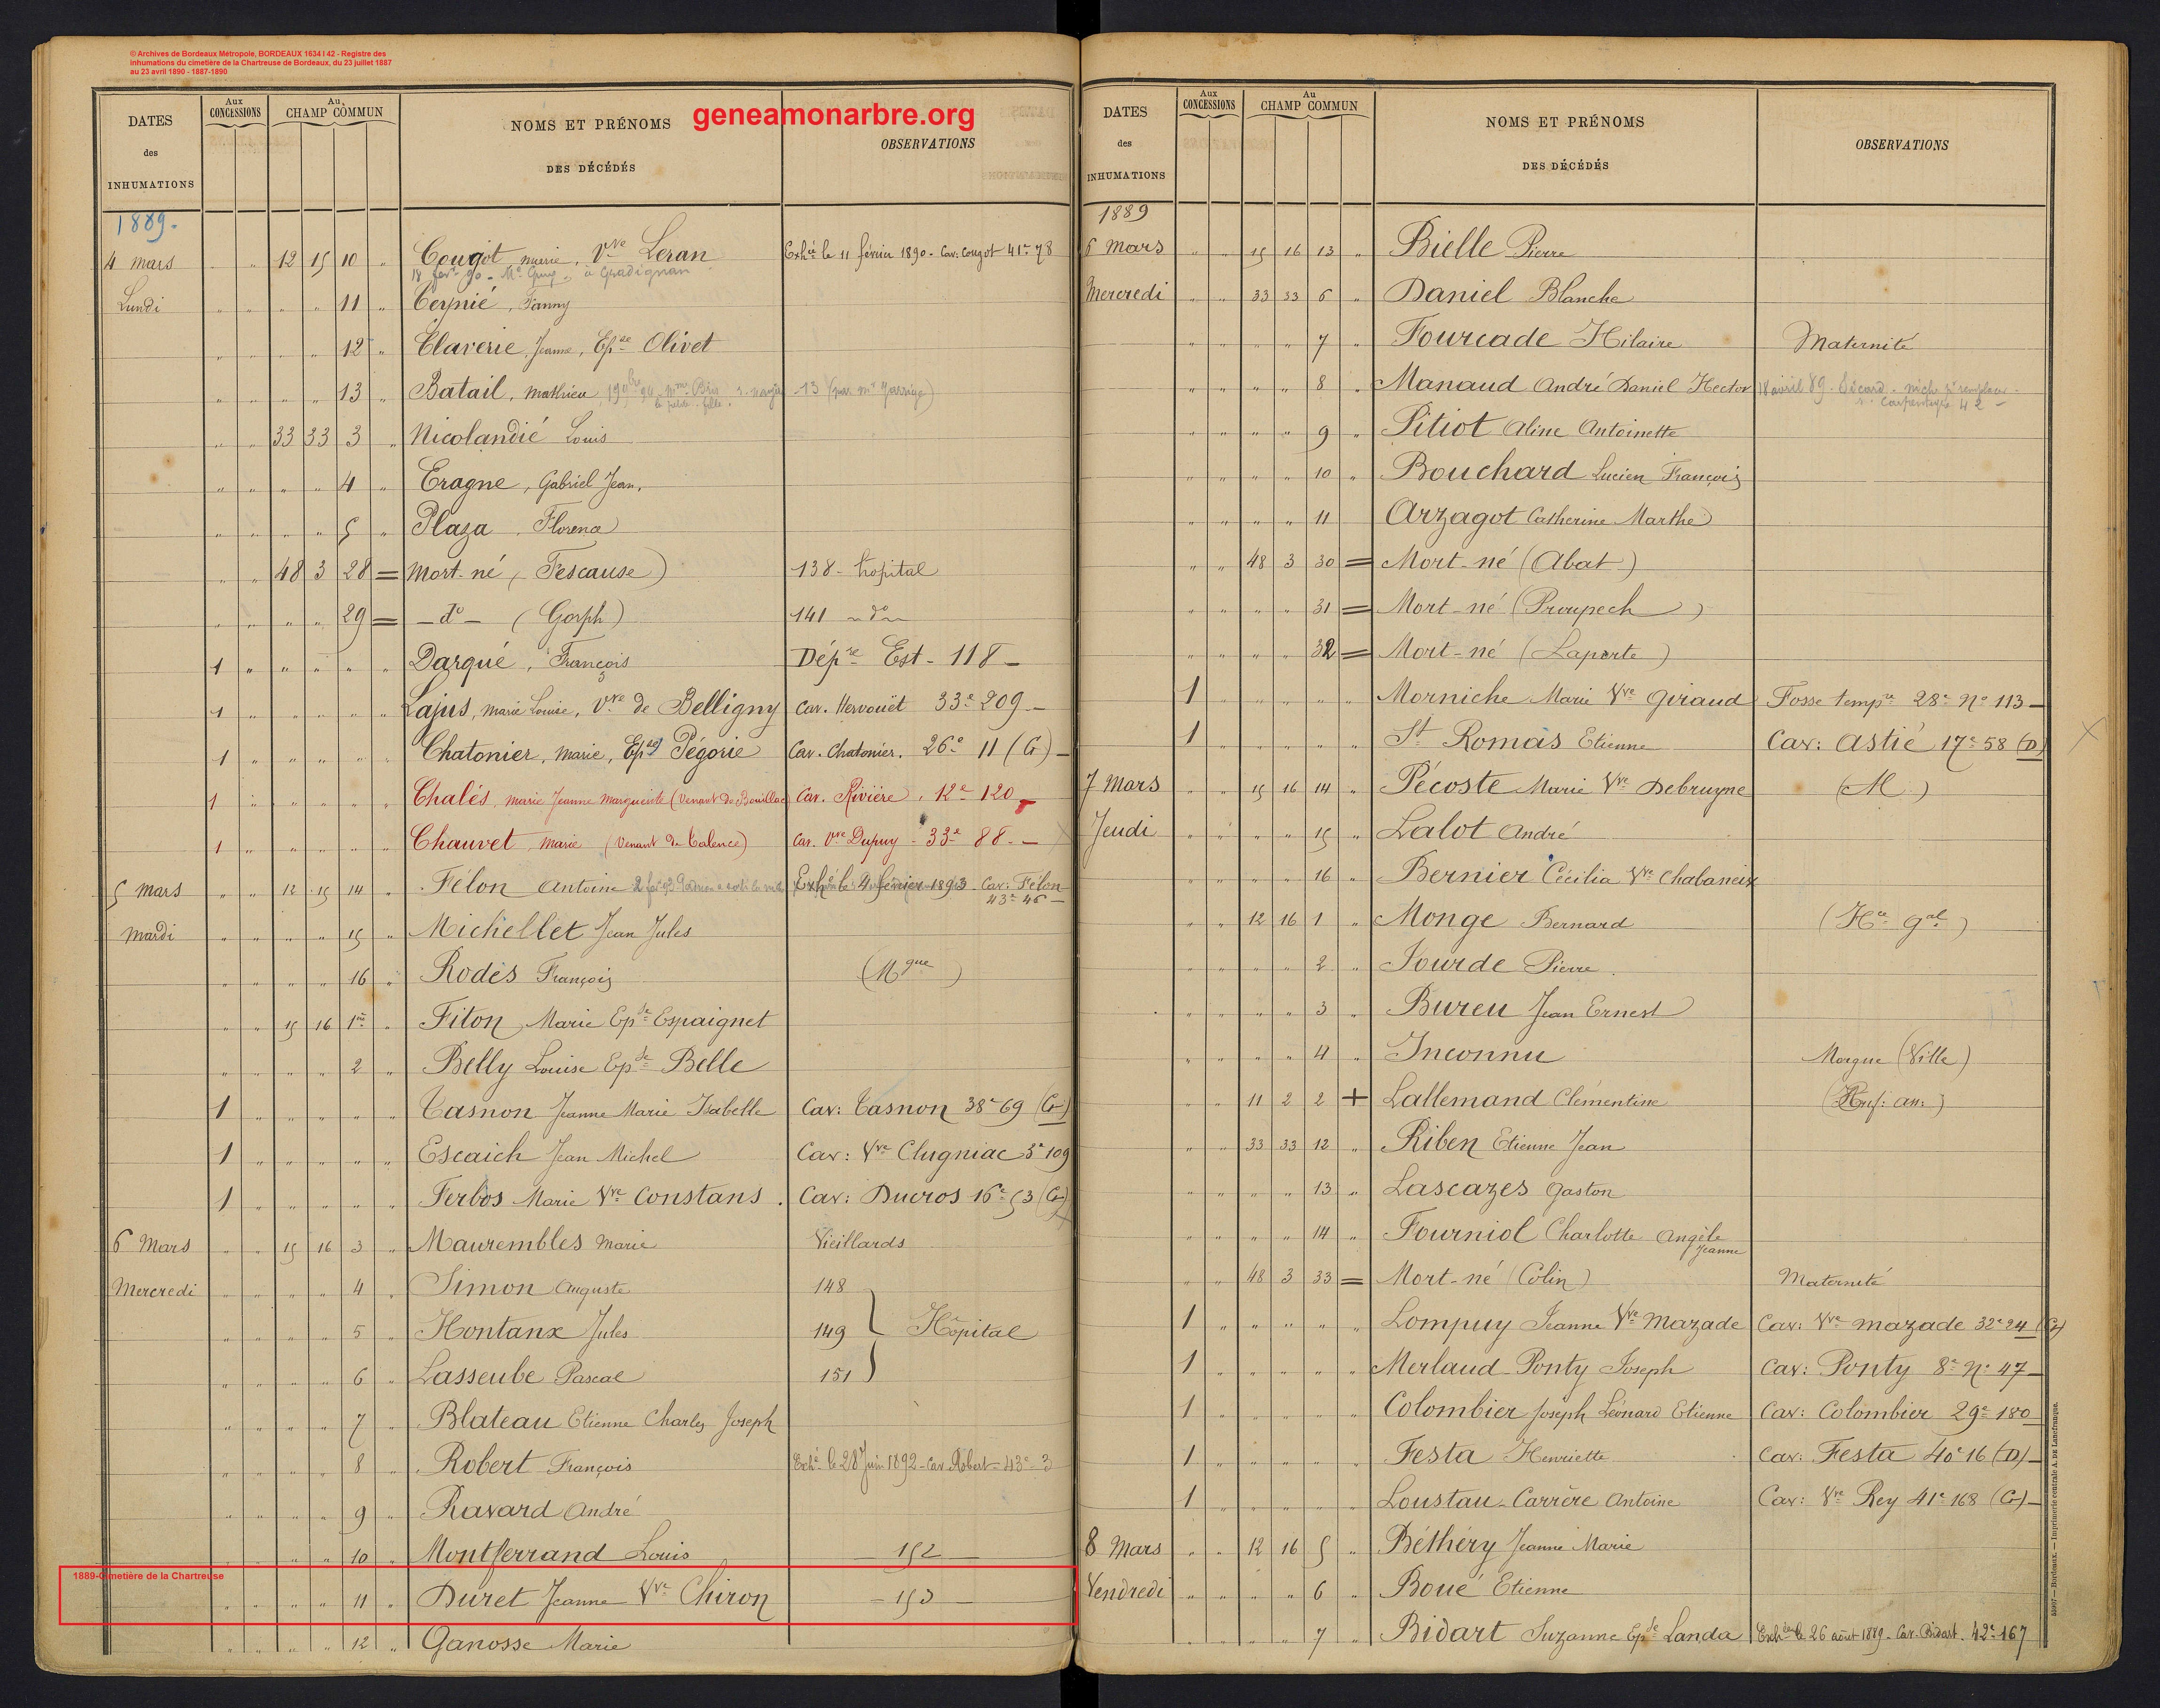 © Archives de Bordeaux Métropole, BORDEAUX 1634 I 42 - Registre des
inhumations du cimetière de la Chartreuse de Bordeaux, du 23 juillet 1887
au 23 avril 1890 - 1887-1890
geneamonarbre.org
DATES des INHUMATIONS
Aux CONCESSIONS
Au CHAMP COMMUN
NOMS ET PRÉNOMS DES DÉCÉDÉS
OBSERVATIONS
1889.
4 mars " " 12 15 10 " Cougot, marie, Vve Leran Exhée le 11 février 1890 - Cav: Cougot 41e 78
à Gradignan
Lundi " " " " 11 " Cerpié, Fanny
" " " " 12 " Claverie, Jeanne, Epse Olivet
" " " " 13 " Batail, Mathieu
" " 33 33 3 " Nicolandié Louis
" " " " 4 " Eragne, Gabriel Jean.
" " " " 5 " Plaza, Florence
" " 48 3 28 = Mort-né (Fescause) 138 - hopital
" " " " 29 = - do - (Gorph) 141 - do -
1 " " " " " Darqué, François Dépre Est - 118 -
1 " " " " " Lajus, Marie Louise, Vve de Belligny Cav. Hervouët 33e 209 -
1 " " " " " Chatonier, Marie, Epse Pégorie Cav. Chatonier. 26e 11 (G) -
1 " " " " " Chalés, Marie Jeanne Marguerite (Venant de Bouillac) Cav. Rivière, 12e 120 -
1 " " " " " Chauvet, Marie (Venant de Talence) Cav. Vve Dupuy - 33e 88. -
5 mars " " 12 15 14 " Félon Antoine Exhé le 4 février 1893 - Cav: Félon
43e 46 -
Mardi " " " " 15 " Michellet Jean Jules
" " " " 16 " Rodès François (Mgue)
" " 15 16 1er " Fiton, Marie Epse Espaignet
" " " " 2 " Belly Louise Epse Belle
1 " " " " " Casnon Jeanne Marie Isabelle Cav: Casnon 38e 69 (G)
1 " " " " " Escaich Jean Michel Cav: Vve Clugniac 3e 109
1 " " " " " Ferbos Marie Vve Constans. Cav: Ducros 16e 53 (G)
6 Mars " " 15 16 3 " Maurembles Marie Vieillards
Mercredi " " " " 4 " Simon Auguste 148
" " " " 5 " Hontanx Jules 149 } Hôpital
" " " " 6 " Lasseube Pascal 151
" " " " 7 " Blateau Etienne Charles Joseph
" " " " 8 " Robert François Exhé le 28 Juin 1892 - Cav. Robert - 43e - 3
" " " " 9 " Ravard André
" " " " 10 " Montferrand Louis - 152 -
1889-Cimetière de la Chartreuse
" " " " 11 " Duret Jeanne Vve Chiron - 153 -
" " " " 12 " Ganosse Marie
DATES des INHUMATIONS
Aux CONCESSIONS
Au CHAMP COMMUN
NOMS ET PRÉNOMS DES DÉCÉDÉS
OBSERVATIONS
1889
6 Mars " " 15 16 13 " Bielle Pierre
Mercredi " " 33 33 6 " Daniel Blanche
" " " " 7 " Fourcade Hilaire Maternité
" " " " 8 " Manaud André Daniel Hector 18 avril 89
" " " " 9 " Pitiot Aline Antoinette
" " " " 10 " Bouchard Lucien François
" " " " 11 Arzagot Catherine Marthe
" " 48 3 30 = Mort-né (Abat)
" " " " 31 = Mort-né (Proupech)
" " " " 32 = Mort-né (Laporte)
1 " " " " " Morniche Marie Vve Giraud Fosse tempre 28e No 113 -
1 " " " " " St Romas Etienne Cav: Astié 17e 58 (D)
7 Mars " " 15 16 14 " Pécoste Marie Vve Debruyne (M)
Jeudi " " " " 15 " Lalot André
" " " " 16 " Bernier Cécilia Vve Chabaneix
" " 12 16 1 " Monge Bernard (Hce gal)
" " " " 2 " Jourde Pierre.
" " " " 3 " Bureu Jean Ernest
" " " " 4 " Inconnu Morgue (Ville)
" " 11 2 2 + Lallemand Clémentine
" " 33 33 12 " Riben Etienne Jean
" " " " 13 " Lascazes Gaston
" " " " 14 " Fourniol Charlotte Angèle
Jeanne
" " 48 3 33 = Mort-né (Colin) Maternité
1 " " " " " Lompuy Jeanne Vve Mazade Cav: Vve Mazade 32e 24 (G)
1 " " " " " Merlaud-Ponty Joseph Cav: Ponty 8e No 47 -
1 " " " " " Colombier Joseph Léonard Etienne Cav: Colombier 29e 180
1 " " " " " Festa Henriette Cav: Festa 40e 16 (D) -
1 " " " " " Loustau-Carrère Antoine Cav: Vve Rey 41e 168 (G) -
8 Mars " " 12 16 5 " Béthéry Jeanne Marie
Vendredi " " " " 6 " Boué Etienne
" " " " 7 " Bidart Suzanne Epse Landa Exhée le 26 août 1889 - Cav. Bidart. 42e 167
55907 — Bordeaux. — Imprimerie centrale A. DE Lanefranque.